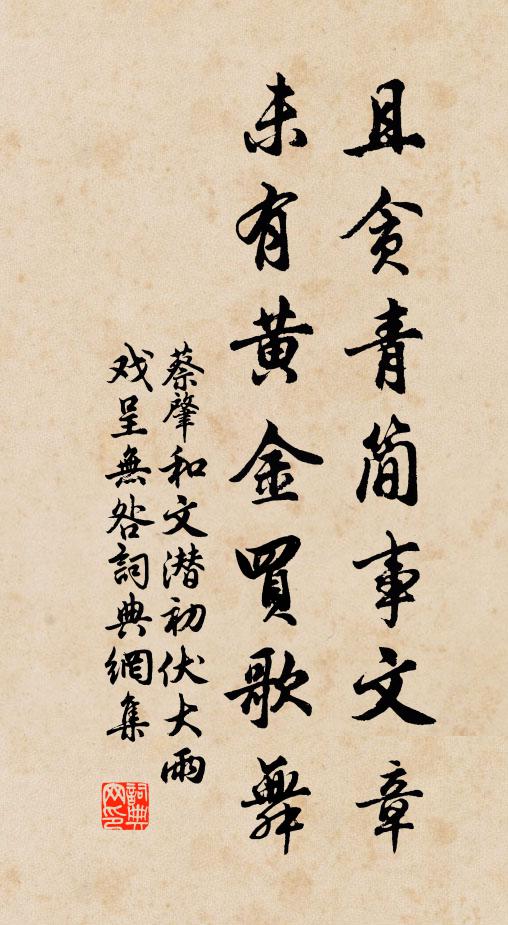 且贪青简事文章
未有黄金買歌舞
蔡肇和文潜初伏大雨
戏呈無咎詞典網集
詞典网印